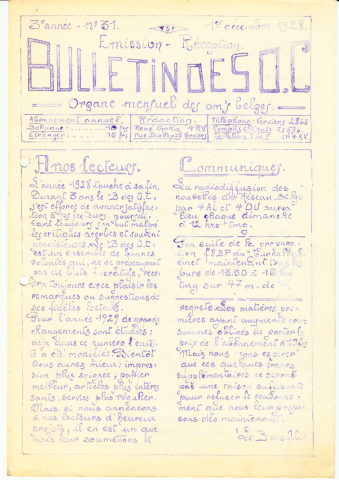 3e année - n° 31.
1er décembre 1928.
Emission - Réception.
BULLETIN DES O.C
Organe mensuel des om's belges.
Abonnement annuel.
Belgique: 10 frs
Etranger: 10 frs
Rédaction.
René Golla 4RV
rue Bidaut Verviers
Téléphone: Verviers 2868
A nos lecteurs.
L'année 1928 touche à sa fin.
Durant 3 ans le B des O.C.
s'est efforcé de donner satisfac
tion à ses lecteurs, poursui-
vant toujours son but malgré
les critiques acerbes et souvent
Le B des O.C.
est un ensemble de bonnes
volontés qui, ne se préoccupant
pas de buts lucratifs, rece-
vra toujours avec plaisir les
remarques ou suggestions de
ses fidèles lecteurs.
Pour l'année 1929 de grands
changements sont étudiés:
déjà dans ce numéro l'entê-
te a été modifié. Bientôt
vous aurez mieux: impres-
sion plus soignée, papier
meilleur, articles plus intéres
sants, service plus régulier.
Mais si nous annonçons
à nos lecteurs d'heureux
projets, il en est un que
nous leur soumettons à
Communiqués.
La radiodiffusion des
nouvelles du Réseau Belge
par 4AL et 4OU aura
lieu chaque dimanche
à 12 hrs tmg.
Son suite de la
est maintenant tous les
jours de 15.50 à 16
tmg sur 47 m. de
regrets. Les matières pre-
mières ayant augmenté nous
sommes obligés de porter le
prix de l'abonnement à
Mais nous sons espérer
que ces quelques francs
supplémentaires ne seront
pas une raison suffisante
pour refuser le réabonne-
ment que nous leur propo-
sons dès maintenant.
Le B des O.C.